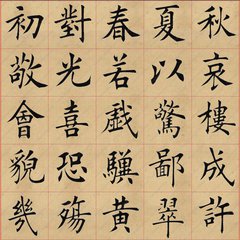 初對春夏秋
敬光若以哀
會喜戲驚樓
貌恐驥鄙成
幾殤黃翠許